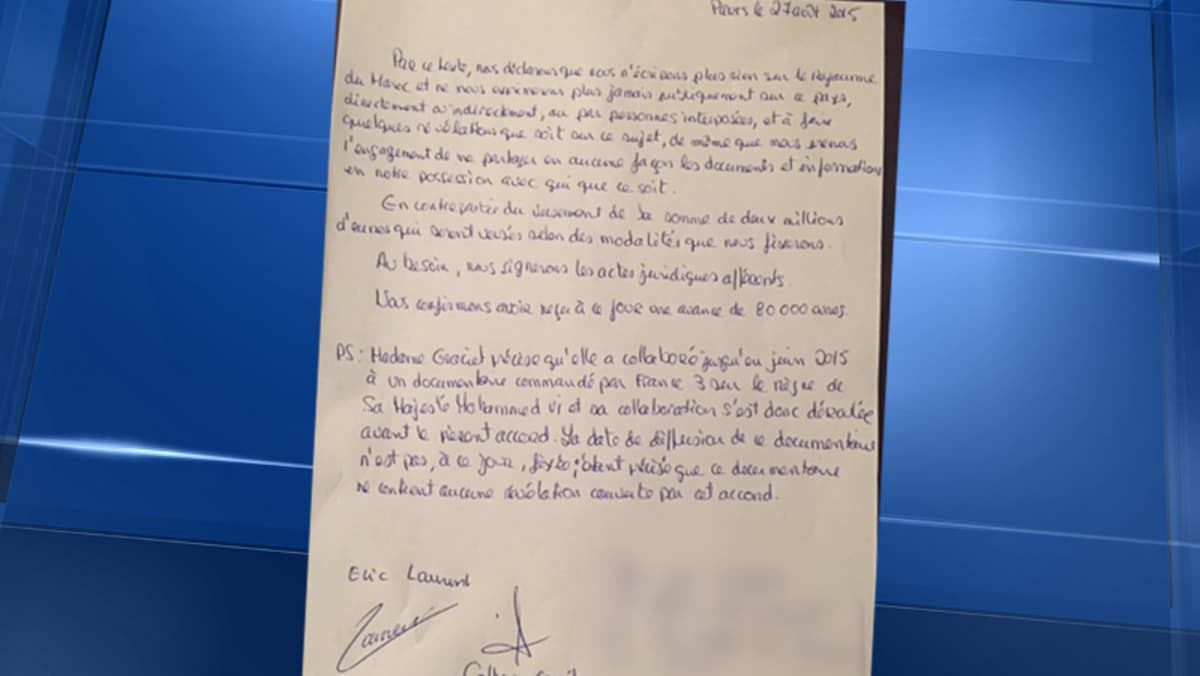 Paris le 27 août 2015
Par ce texte, nous déclarons que nous n'écrirons plus rien sur le Royaume
du Maroc et ne nous exprimerons plus jamais publiquement sur ce pays,
directement ou indirectement, ou par personnes interposées, et à faire
quelques révélations que soit sur ce sujet, de même que nous prenons
l'engagement de ne partager en aucune façon les documents et informations
en notre possession avec qui que ce soit.
En contrepartie du versement de la somme de deux millions
d'euros qui seront versés selon des modalités que nous fixerons.
Au besoin, nous signerons les actes juridiques afférents.
Nous confirmons avoir reçu à ce jour une avance de 80 000 euros.
PS: Madame Graciet précise qu'elle a collaboré jusqu'en juin 2015
à un documentaire commandé par France 3 sur le règne de
Sa Majesté Mohammed VI et sa collaboration s'est donc déroulée
avant le présent accord. La date de diffusion de ce documentaire
n'est pas, à ce jour, fixée; étant précisé que ce documentaire
ne contient aucune révélation couverte par cet accord.
Eric Laurent
Laurent